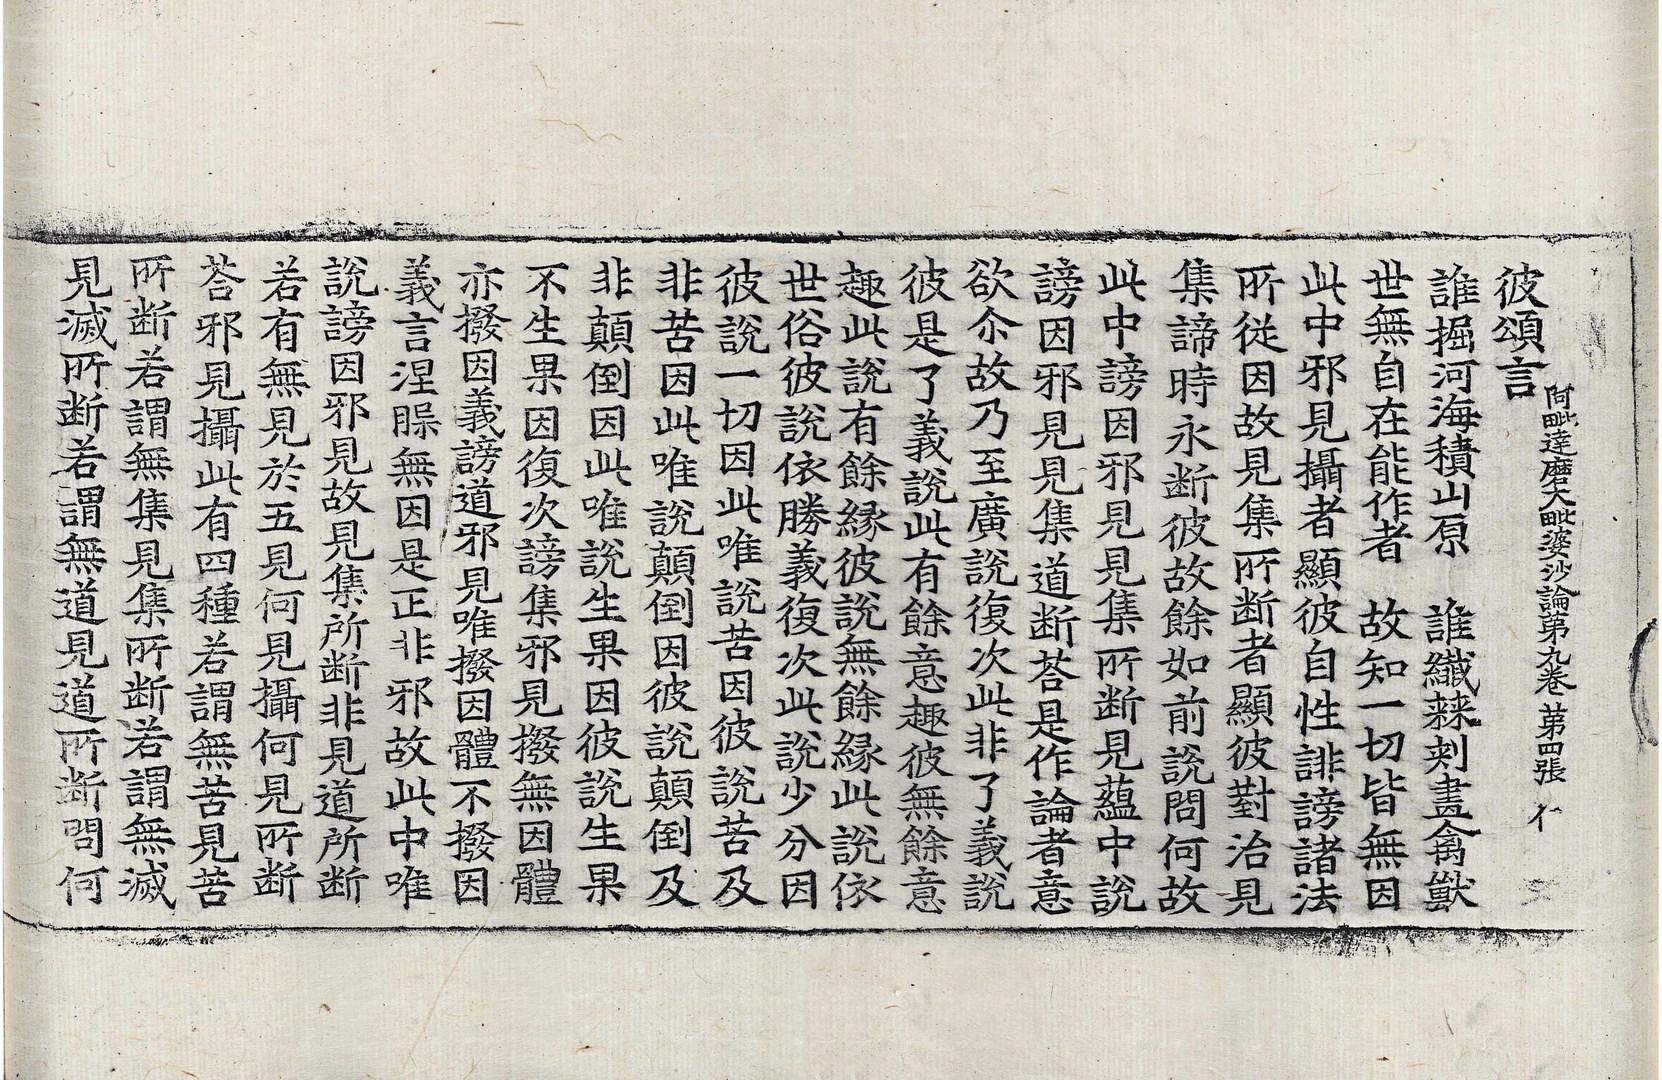 阿毗達磨大毗婆沙論第九卷 第四張 仁
彼頌言
誰掘河海積山原 誰纖棘刾畫禽獸
世無自在能作者 故知一切皆無因
此中邪見攝者顯彼自性誹謗諸法
所從因故見集所断者顯彼對治見
集諦時永断彼故餘如前說問何故
此中謗因邪見見集所断見蘊中說
謗因邪見見集道断荅是作論者意
欲尒故乃至廣說復次此非了義說
彼是了義說此有餘意趣彼無餘意
趣此說有餘縁彼說無餘縁此說依
世俗彼說依勝義復次此說少分因
彼說一切因此唯說苦因彼說苦及
非苦因此唯說顛倒因彼說顛倒及
非顛倒因此唯說生果因彼說生果
不生果因復次謗集邪見撥無因體
亦撥因義謗道邪見唯撥因體不撥因
義言涅槃無因是正非邪故此中唯
說謗因邪見故見集所断非見道所断
若有無見於五見何見攝何見所断
荅邪見攝此有四種若謂無苦見苦
所断若謂無集見集所断若謂無滅
見滅所断若謂無道見道所断問何